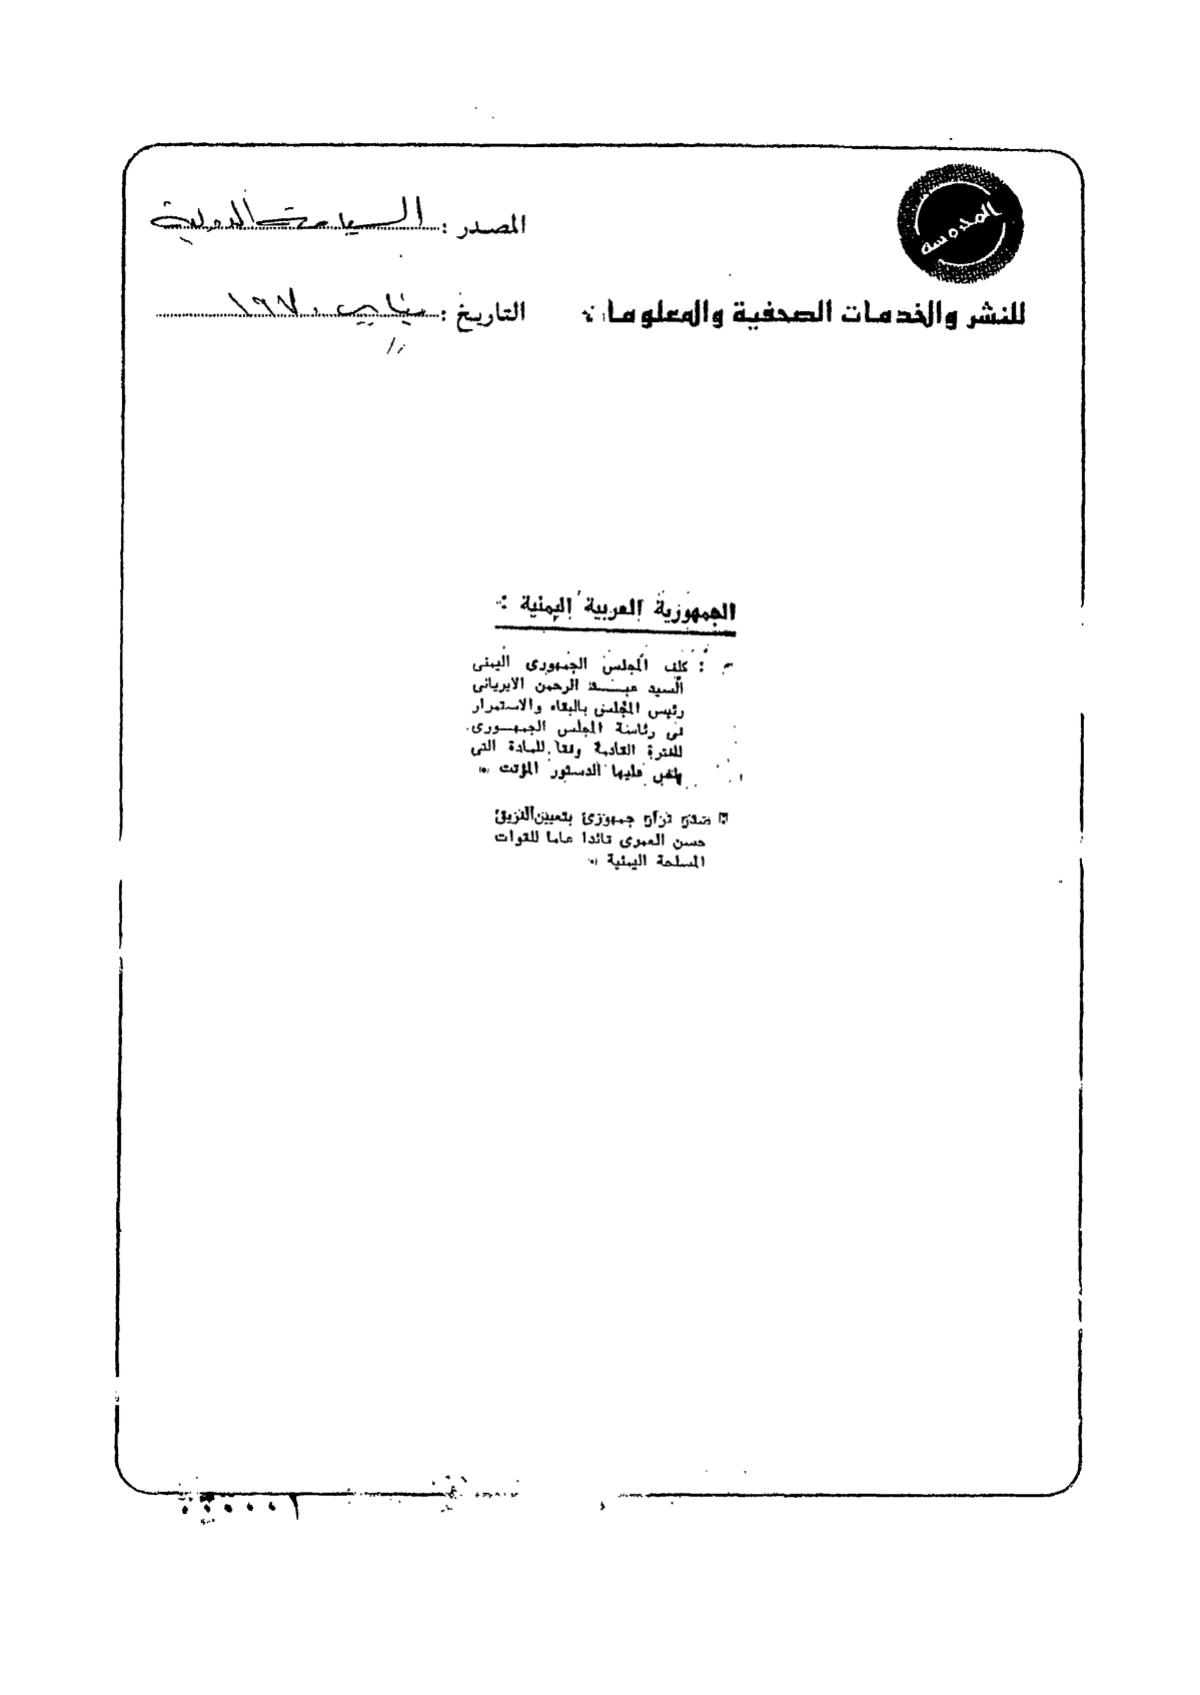 المحروسة
للنشر والخدمات الصحفية والمعلومات
المصدر : السياسة الدولية
التاريخ : يناير ١٩٧٠
الجمهورية العربية اليمنية :
: كلف المجلس الجمهورى اليمنى
السيد عبد الرحمن الايريانى
رئيس المجلس بالبقاء والاستمرار
فى رئاسة المجلس الجمهورى
للفترة القادمة وفقا للمادة التى
ينص عليها الدستور المؤقت
صدر قرار جمهورى بتعيين الفريق
حسن العمرى قائدا عاما للقوات
المسلحة اليمنية